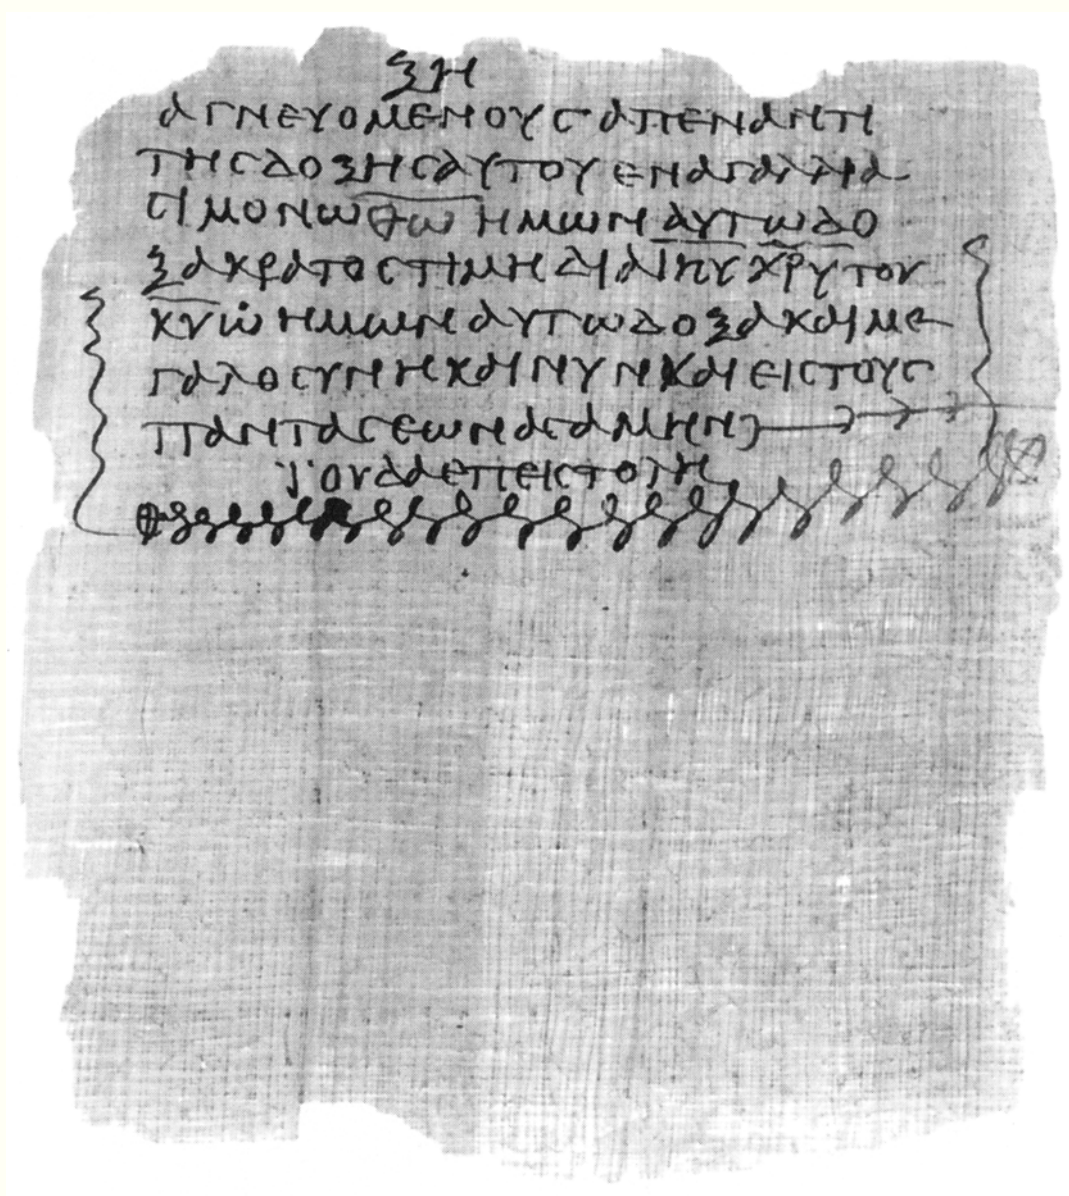 ΞΗ
ΑΓΝΕΥΟΜΕΝΟΥΣ ΑΠΕΝΑΝΤΙ
ΤΗΣ ΔΟΞΗΣ ΑΥΤΟΥ ΕΝ ΑΓΑΛΛΙΑ
ΣΙ ΜΟΝΩ ΘΩ ΗΜΩΝ ΑΥΤΩ ΔΟ
ΞΑ ΚΡΑΤΟΣ ΤΙΜΗ ΔΙΑ ΙΗΥ ΧΡΥ ΤΟΥ
ΚΥ ΗΜΩΝ ΑΥΤΩ ΔΟΞΑ ΚΑΙ ΜΕ
ΓΑΛΟΣΥΝΗ ΚΑΙ ΝΥΝ ΚΑΙ ΕΙΣ ΤΟΥΣ
ΠΑΝΤΑΣ ΕΩΝΑΣ ΑΜΗΝ
ΙΟΥΔΑ ΕΠΕΙΣΤΟΛΗ